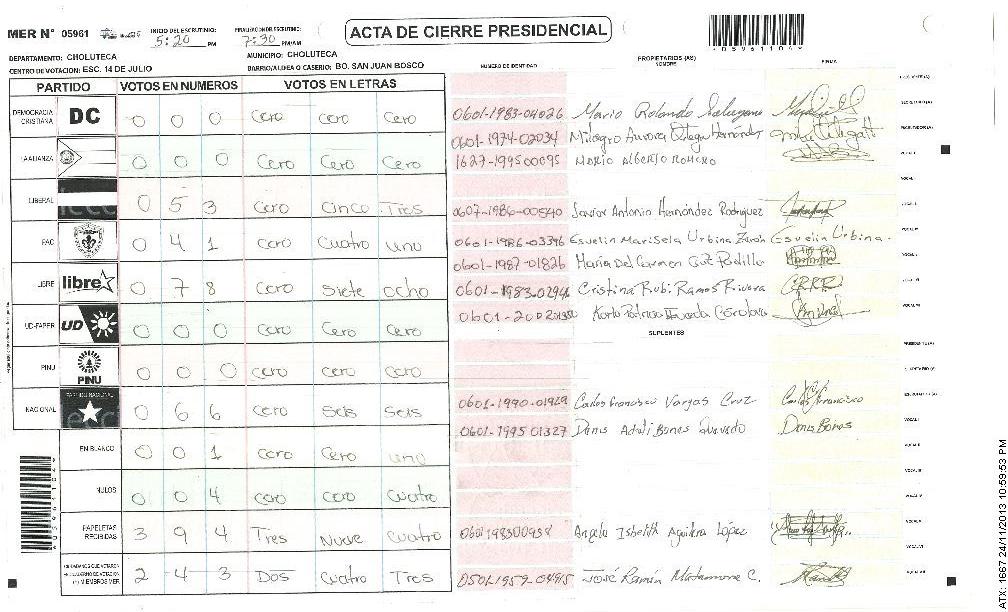 MER N° 05961
INICIO DEL ESCRUTINIO: 5:20 PM
FINALIZACION DE ESCRUTINIO: 7:30 PM/AM
ACTA DE CIERRE PRESIDENCIAL
DEPARTAMENTO: CHOLUTECA
MUNICIPIO: CHOLUTECA
CENTRO DE VOTACION: ESC. 14 DE JULIO
BARRIO/ALDEA O CASERIO: BO. SAN JUAN BOSCO
PARTIDO VOTOS EN NUMEROS VOTOS EN LETRAS
NUMERO DE IDENTIDAD PROPIETARIOS (AS) NOMBRE FIRMA
DEMOCRACIA CRISTIANA DC 0 0 0 Cero Cero Cero
0601-1983-04026 Mario Rolando
0601-1974-02034 Milagro Aurora Ortega Hernández
LA ALIANZA 0 0 0 Cero Cero Cero
1627-199500095 MARIO ALBERTO ROMERO
LIBERAL 0 5 3 Cero Cinco Tres
0607-1986-00540 Javier Antonio Hernández Rodriguez
PAC 0 4 1 cero cuatro uno
0601-1986-03396 Esuelin Marisela Urbina Esuelin Urbina.
0601-1987-01826 Maria Del Carmen Padilla
LIBRE libre 0 7 8 Cero Siete ocho
0601-1983-0294 Cristina Rubi Ramos Rivera
UD-FAPER UD 0 0 0 Cero Cero Cero
Karla Patricia
SUPLENTES
PINU PINU 0 0 0 Cero Cero Cero
NACIONAL PARTIDO NACIONAL 0 6 6 Cero Seis Seis
0601-1990-01929 Carlos Francisco Vargas Cruz Carlos Francisco
0601-1995 01327 Denis Adali Bones Quevedo Denis Bones
EN BLANCO 0 0 1 Cero Cero uno
NULOS 0 0 4 Cero Cero Cuatro
PAPELETAS RECIBIDAS 3 9 4 Tres Nueve Cuatro
0601198300958 Angela Isbelith Aguilera López
CIUDADANOS QUE VOTARON 2 4 3 Dos Cuatro Tres
(+) MIEMBROS MER
0501-1959-04915 José Ramón Matamoros C.
ATX: 1667 24/11/2013 10:59:53 PM